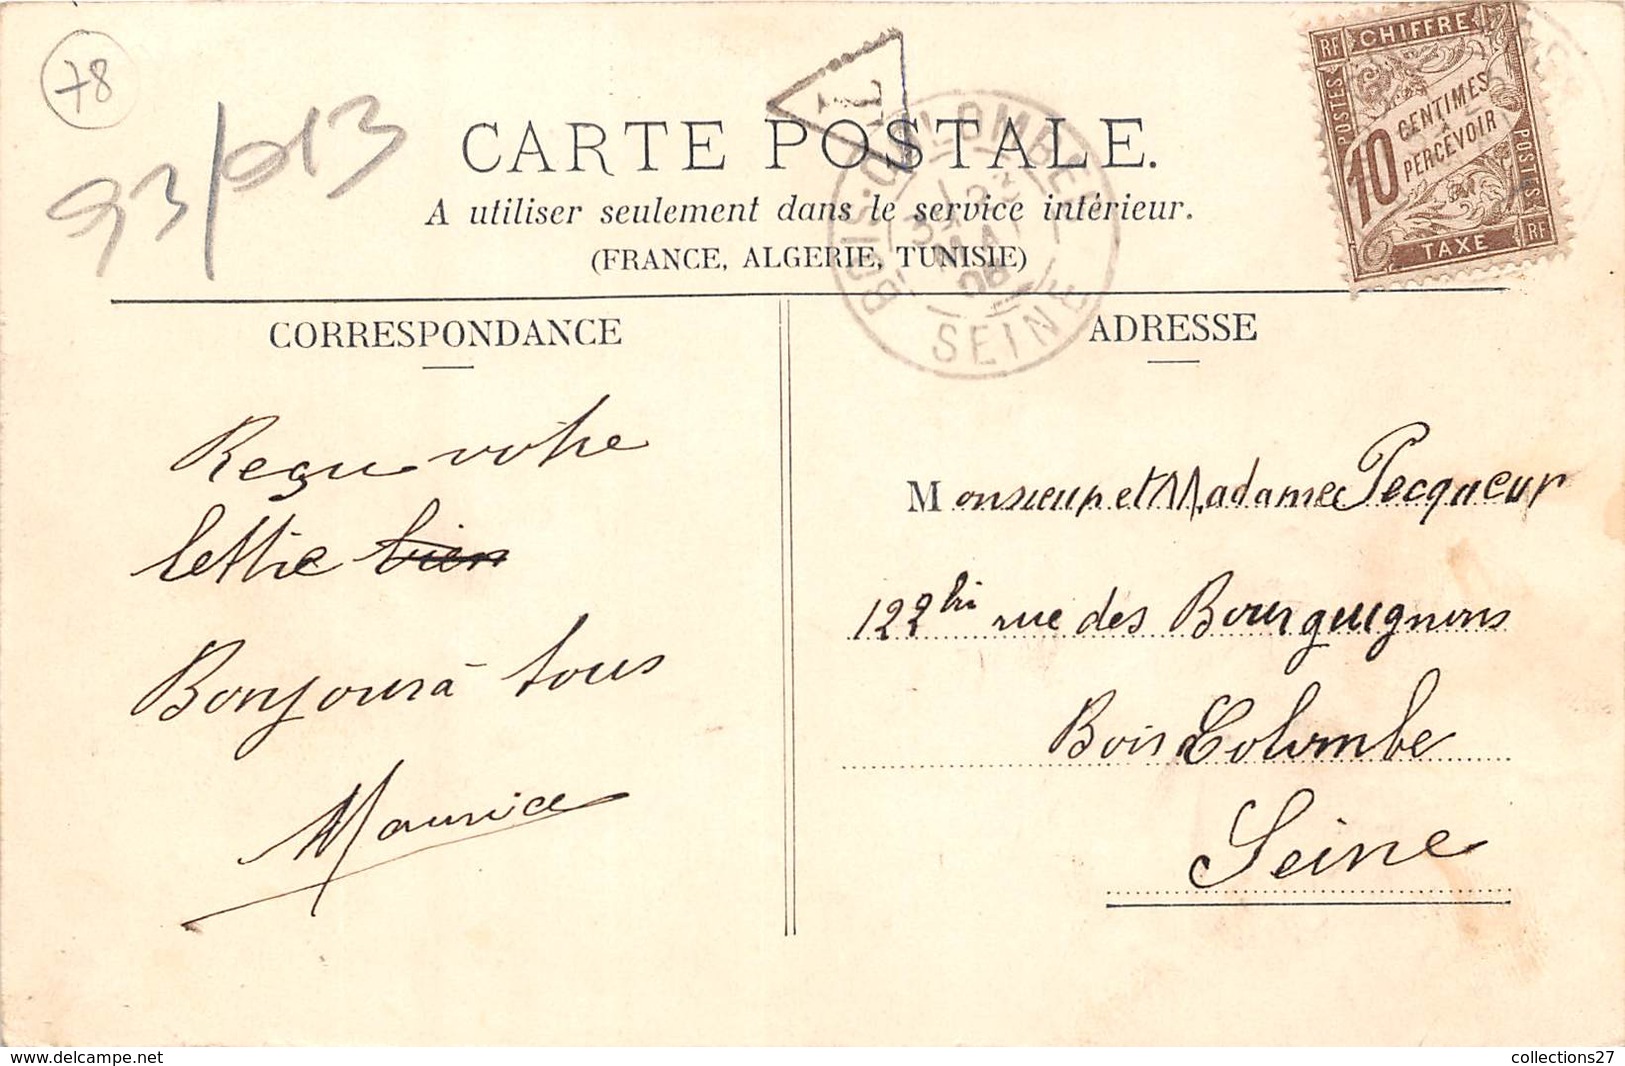 78
93/013
CARTE POSTALE.
A utiliser seulement dans le service intérieur.
(FRANCE, ALGERIE, TUNISIE)
T
BOIS-COLOMBES
MAI
08
SEINE
RF CHIFFRE
POSTES
10 CENTIMES
A
PERCEVOIR
POSTES
TAXE RF
CORRESPONDANCE
Reçu votre
lettre bien
Bonjour à tous
Maurice
ADRESSE
Monsieur et Madame Pecqueur
122 bis rue des Bourguignons
Bois Colombe
Seine
collections27